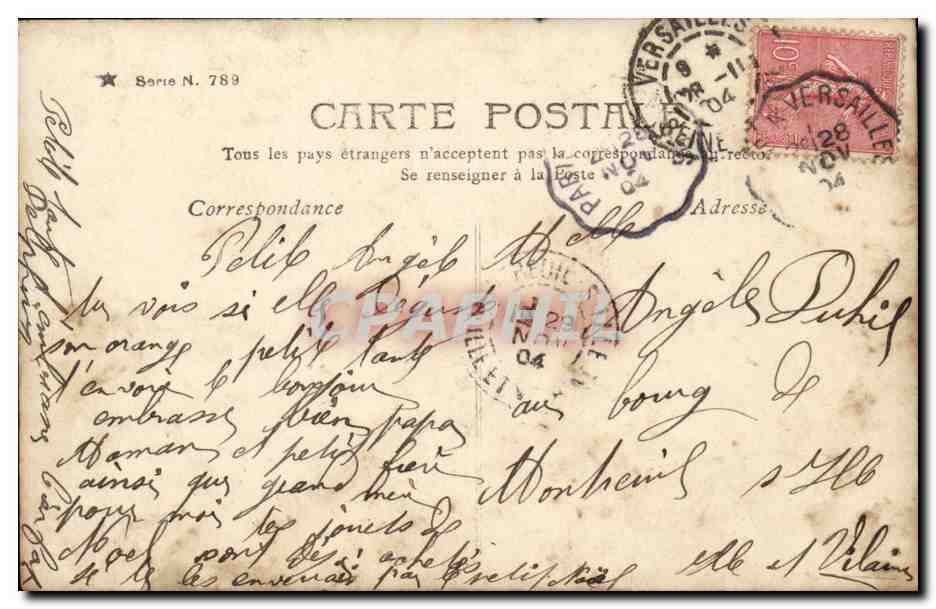 ★ Serie N. 789
CARTE POSTALE
Tous les pays étrangers n'acceptent pas la correspondance au recto.
Se renseigner à la Poste
Correspondance
Adresse
Petit Angèle
tu vois si elle Déguste
son orange petit tante
t'envoie le bonjour
embrasse bien papa
Maman et petit frère
ainsi que grand mère
pour moi tes jouets de
Noel sont déjà achetés
je te les enverrais par le petit Noël
Melle
Angèle Duhil
au bourg de
Montreuil s/ Ille
Ille et Vilaine
VERSAILLES
28 -11
04
SEINE
VERSAILLES
28
NOV
04
PARI
28
NO
04
29
04
CPAPHIL